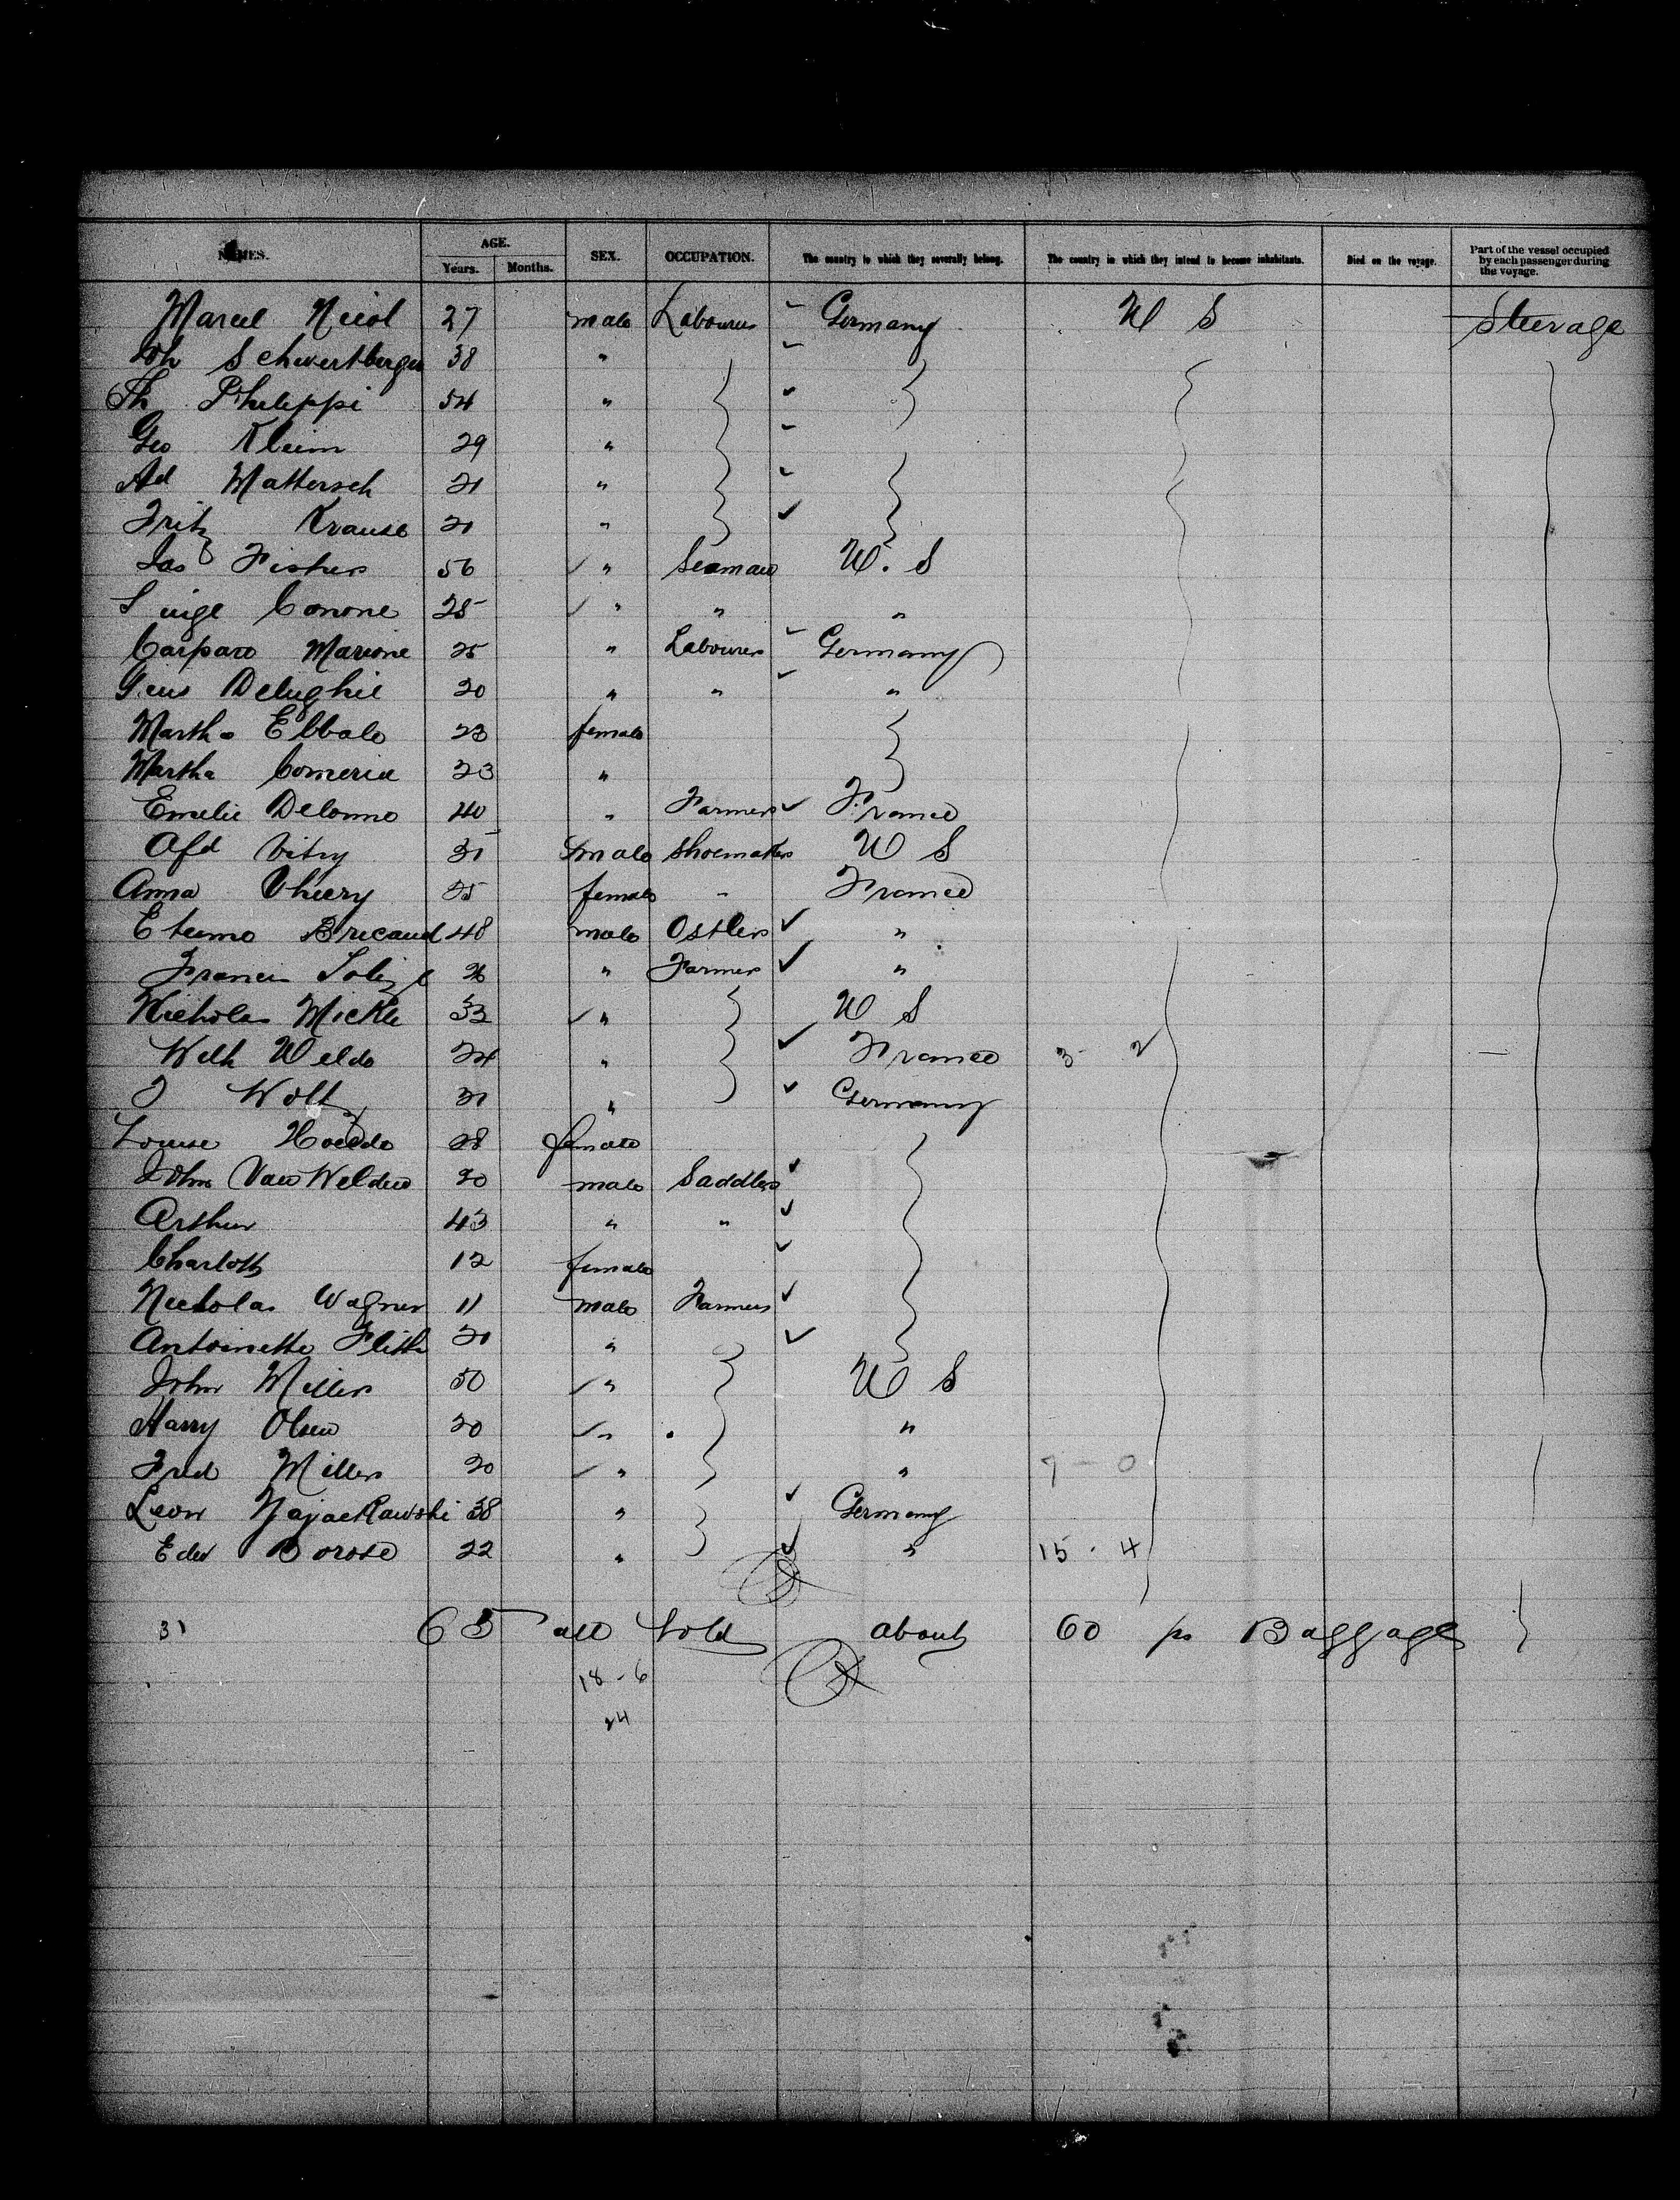 NAMES. AGE. SEX. OCCUPATION. The country to which they severally belong. The country in which they intend to become inhabitants. Died on the voyage. Part of the vessel occupied by each passenger during the voyage.
Years. Months.
Marcel Nicol 27 male Labourer Germany U S Steerage
Joh Schwertberger 38 "
Th Philippi 54 "
Geo Kleim 29 "
Ad Mattersch 21 "
Fritz Krause 21 "
Jas Fisher 56 " Seaman U. S
Luige Conone 25 " " "
Carparo Marione 25 " Labourer Germany
Delughie 20 " " "
Martha Ebbale 23 female
Martha Comerie 23 "
Emelie Delonne 40 " Farmer France
Afd Vitry 31 male Shoemaker U S
Anna Vhiery 25 female " France
Etienne Bricaud 48 male Ostler " "
Francis 26 " Farmer "
Nicholas Mickle 33 " U S
Welh Welde 24 " France 3 - 2
J Woltz 31 " Germany
Louise 28 female
John Van Welden 20 male Saddler
Arthur 43 " "
Charlotte 12 female
Nicholas Wagner 11 male Farmer
Antoinette Flith 20 "
John Miller 50 " U S
Harry Olsen 20 " "
Fred Miller 20 " " 7 - 0
Leon Najackawski 38 " Germany
Edw Borose 22 " " 15 - 4
31 65 all told about 60 ps Baggage
18 - 6
24